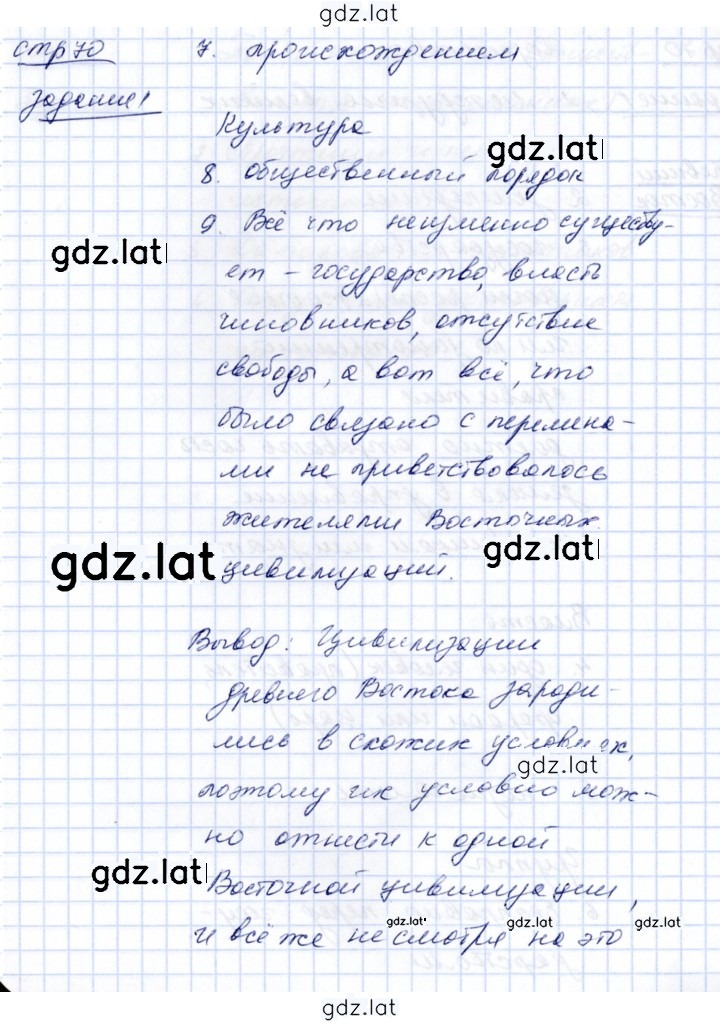 gdz.lat
стр 70 7. происхождением
задание 1
Культура
gdz.lat
8. общественный порядок
9. Всё что неизменно существу-
gdz.lat
ет – государство, власть
чиновников, отсутствие
свободы, а вот всё, что
было связано с перемена-
ми не приветствовалось
жителями Восточных
gdz.lat
gdz.lat
цивилизаций.
Вывод: Цивилизации
древнего Востока зароди-
лись в схожих условиях,
gdz.lat
поэтому их условно мож-
но отнести к одной
gdz.lat
Восточной цивилизации,
gdz.lat gdz.lat gdz.lat
И всё же не смотря на это
gdz.lat